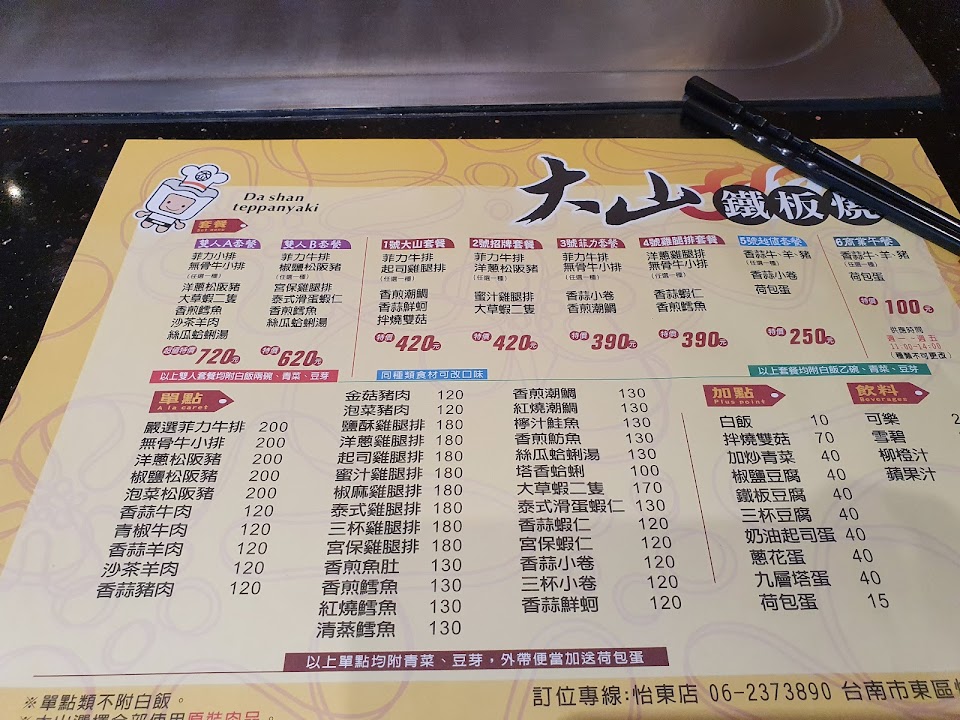 Da shan
teppanyaki
大山
鐵板燒
套餐
Set menu
雙人A套餐
菲力小排
無骨牛小排
(任選一種)
洋蔥松阪豬
大草蝦二隻
香煎鱈魚
沙茶羊肉
絲瓜蛤蜊湯
超值特價 720元
雙人B套餐
菲力牛排
椒鹽松阪豬
(任選一種)
宮保雞腿排
泰式滑蛋蝦仁
香煎鱈魚
絲瓜蛤蜊湯
特價 620元
以上雙人套餐均附白飯兩碗、青菜、豆芽
1號大山套餐
菲力牛排
起司雞腿排
(任選一種)
香煎潮鯛
香蒜鮮蚵
拌燒雙菇
特價 420元
2號招牌套餐
菲力牛排
洋蔥松阪豬
(任選一種)
蜜汁雞腿排
大草蝦二隻
特價 420元
3號菲力套餐
菲力牛排
無骨牛小排
(任選一種)
香蒜小卷
香煎潮鯛
特價 390元
4號雞腿排套餐
洋蔥雞腿排
無骨牛小排
(任選一種)
香蒜蝦仁
香煎鱈魚
特價 390元
5號超值套餐
香蒜牛、羊、豬
(任選一種)
香蒜小卷
荷包蛋
特價 250元
6商業午餐
香蒜牛、羊、豬
(任選一種)
荷包蛋
特價 100元
供應時間
週一 ~ 週五
11:00~14:00
(種類不可更改)
同種類食材可改口味
以上套餐均附白飯乙碗、青菜、豆芽
單點
A la caret
嚴選菲力牛排 200
無骨牛小排 200
洋蔥松阪豬 200
椒鹽松阪豬 200
泡菜松阪豬 200
香蒜牛肉 120
青椒牛肉 120
香蒜羊肉 120
沙茶羊肉 120
香蒜豬肉 120
金菇豬肉 120
泡菜豬肉 120
鹽酥雞腿排 180
洋蔥雞腿排 180
起司雞腿排 180
蜜汁雞腿排 180
椒麻雞腿排 180
泰式雞腿排 180
三杯雞腿排 180
宮保雞腿排 180
香煎魚肚 130
香煎鱈魚 130
紅燒鱈魚 130
清蒸鱈魚 130
香煎潮鯛 130
紅燒潮鯛 130
檸汁鮭魚 130
香煎魴魚 130
絲瓜蛤蜊湯 130
塔香蛤蜊 100
大草蝦二隻 170
泰式滑蛋蝦仁 130
香蒜蝦仁 120
宮保蝦仁 120
香蒜小卷 120
三杯小卷 120
香蒜鮮蚵 120
加點
Plus point
白飯 10
拌燒雙菇 70
加炒青菜 40
椒鹽豆腐 40
鐵板豆腐 40
三杯豆腐 40
奶油起司蛋 40
蔥花蛋 40
九層塔蛋 40
荷包蛋 15
飲料
Beverages
可樂 2
雪碧
柳橙汁
蘋果汁
以上單點均附青菜、豆芽，外帶便當加送荷包蛋
※單點類不附白飯。
訂位專線:怡東店 06-2373890 台南市東區